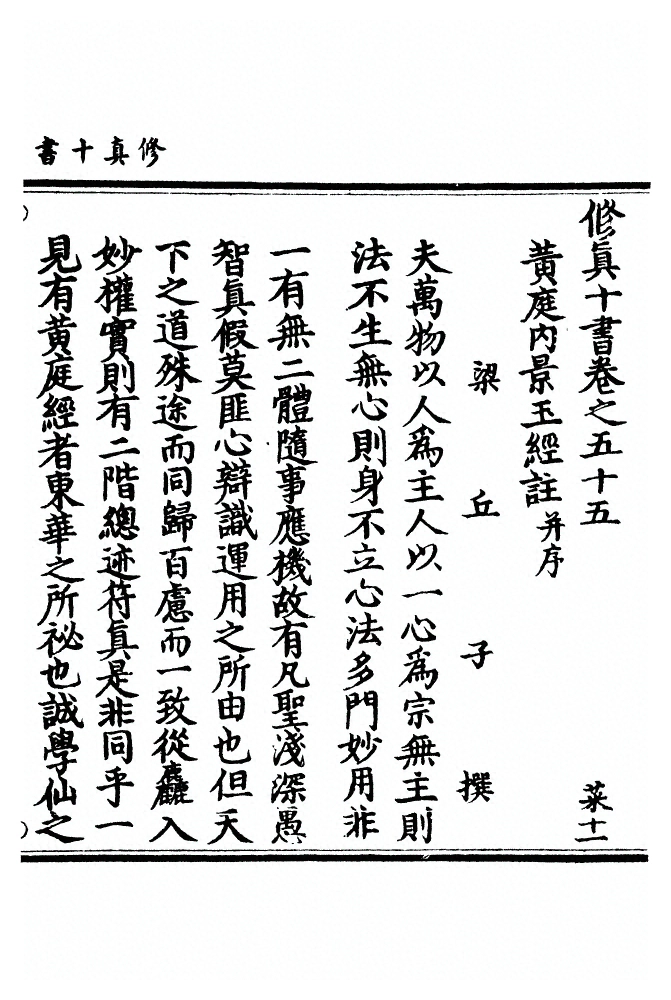 修真十書
修眞十書卷之五十五 菜十一
黃庭内景玉經註并序
梁丘子撰
夫萬物以人爲主人以一心爲宗無主則
法不生無心則身不立心法多門妙用非
一有無二體隨事應機故有凡聖淺深愚
智眞假莫匪心辯識運用之所由也但天
下之道殊途而同歸百慮而一致從麤入
妙權實則有二階總迹符眞是非同乎一
見有黃庭經者東華之所祕也誠學仙之